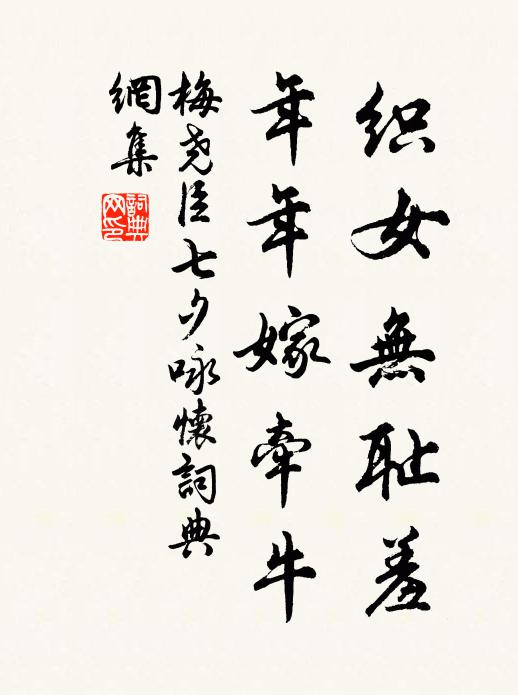 织女無耻羞
年年嫁牽牛
梅尧臣七夕咏懷詞典
網集
詞典
网印